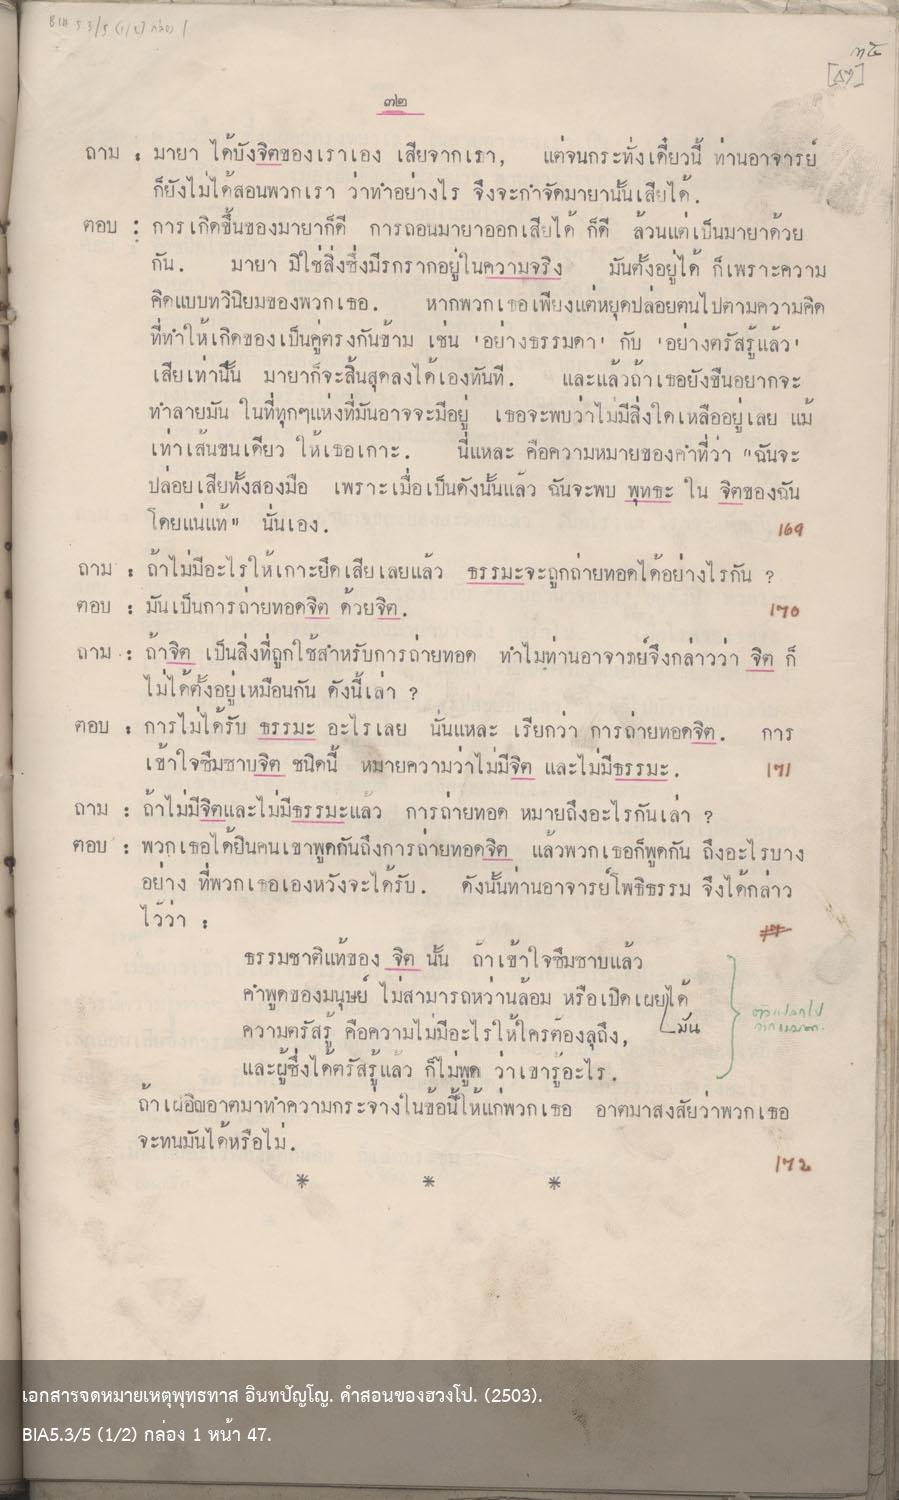 BIA 5.3/5 (1/2) กล่อง 1
[47]
๓๒
ถาม : มายา ได้บังจิตของเราเอง เสียจากเรา, แต่จนกระทั่งเดี๋ยวนี้ ท่านอาจารย์
ก็ยังไม่ได้สอนพวกเรา ว่าทำอย่างไร จึงจะกำจัดมายานั้นเสียได้.
ตอบ : การเกิดขึ้นของมายาก็ดี การถอนมายาออกเสียได้ ก็ดี ล้วนแต่เป็นมายาด้วย
กัน. มายา มิใช่สิ่งซึ่งมีรกรากอยู่ในความจริง มันตั้งอยู่ได้ ก็เพราะความ
คิดแบบทวินิยมของพวกเธอ. หากพวกเธอเพียงแต่หยุดปล่อยตนไปตามความคิด
ที่ทำให้เกิดของเป็นคู่ตรงกันข้าม เช่น 'อย่างธรรมดา' กับ 'อย่างตรัสรู้แล้ว'
เสียเท่านั้น มายาก็จะสิ้นสุดลงได้เองทันที. และแล้วถ้าเธอยังขืนอยากจะ
ทำลายมัน ในที่ทุกๆแห่งที่มันอาจจะมีอยู่ เธอจะพบว่าไม่มีสิ่งใดเหลืออยู่เลย แม้
เท่าเส้นขนเดียว ให้เธอเกาะ. นี่แหละ คือความหมายของคำที่ว่า "ฉันจะ
ปล่อยเสียทั้งสองมือ เพราะเมื่อเป็นดังนั้นแล้ว ฉันจะพบ พุทธะ ใน จิตของฉัน
โดยแน่แท้" นั่นเอง.
169
ถาม : ถ้าไม่มีอะไรให้เกาะยึดเสียเลยแล้ว ธรรมะจะถูกถ่ายทอดได้อย่างไรกัน ?
ตอบ : มันเป็นการถ่ายทอดจิต ด้วยจิต.
170
ถาม : ถ้าจิต เป็นสิ่งที่ถูกใช้สำหรับการถ่ายทอด ทำไมท่านอาจารย์จึงกล่าวว่า จิต ก็
ไม่ได้ตั้งอยู่เหมือนกัน ดังนี้เล่า ?
ตอบ : การไม่ได้รับ ธรรมะ อะไรเลย นั่นแหละ เรียกว่า การถ่ายทอดจิต. การ
เข้าใจซึมซาบจิต ชนิดนี้ หมายความว่าไม่มีจิต และไม่มีธรรมะ.
171
ถาม : ถ้าไม่มีจิตและไม่มีธรรมะแล้ว การถ่ายทอด หมายถึงอะไรกันเล่า ?
ตอบ : พวกเธอได้ยินคนเขาพูดกันถึงการถ่ายทอดจิต แล้วพวกเธอก็พูดกัน ถึงอะไรบาง
อย่าง ที่พวกเธอเองหวังจะได้รับ. ดังนั้นท่านอาจารย์โพธิธรรม จึงได้กล่าว
ไว้ว่า :
ธรรมชาติแท้ของ จิต นั้น ถ้าเข้าใจซึมซาบแล้ว
คำพูดของมนุษย์ ไม่สามารถหว่านล้อม หรือเปิดเผยได้
มัน
ความตรัสรู้ คือความไม่มีอะไรให้ใครต้องลุถึง,
และผู้ซึ่งได้ตรัสรู้แล้ว ก็ไม่พูด ว่าเขารู้อะไร.
ถ้าเผอิญอาตมาทำความกระจ่างในข้อนี้ให้แก่พวกเธอ อาตมาสงสัยว่าพวกเธอ
จะทนมันได้หรือไม่.
172
* * *
เอกสารจดหมายเหตุพุทธทาส อินทปัญโญ. คำสอนของฮวงโป. (2503).
BIA5.3/5 (1/2) กล่อง 1 หน้า 47.